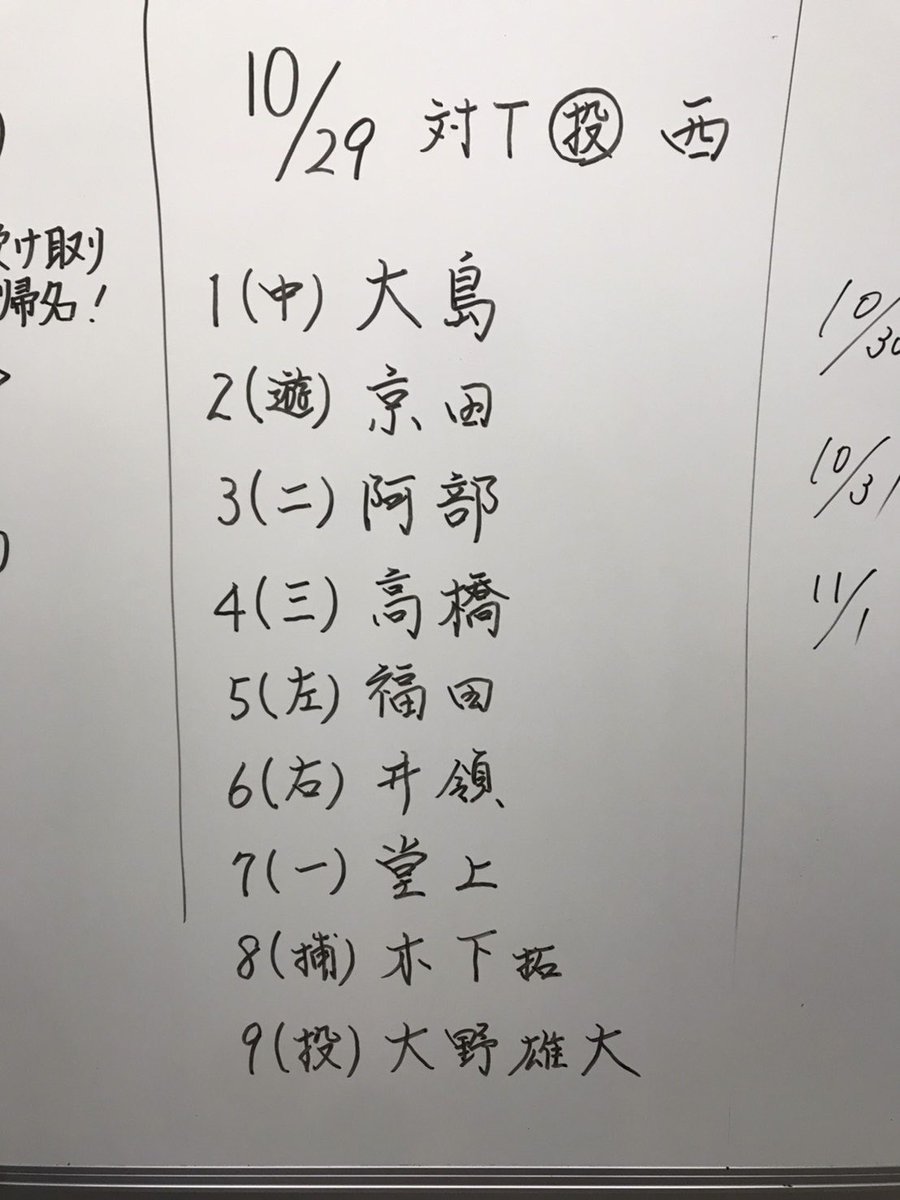 10/29 対T 投 西
1(中) 大島
2(遊) 京田
3(二) 阿部
4(三) 高橋
5(左) 福田
6(右) 井領
7(一) 堂上
8(捕) 木下拓
9(投) 大野雄大
け取り
帰名!
10/30
10/31
11/1